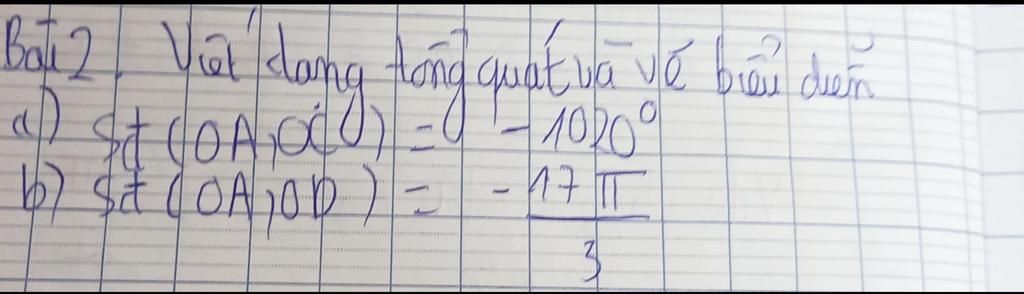 Bài 2. Viết dạng tổng quát và vẽ biểu diễn
a) Sđ (OA, OC) = -1020°
b) Sđ (OA, OD) = -17π/3